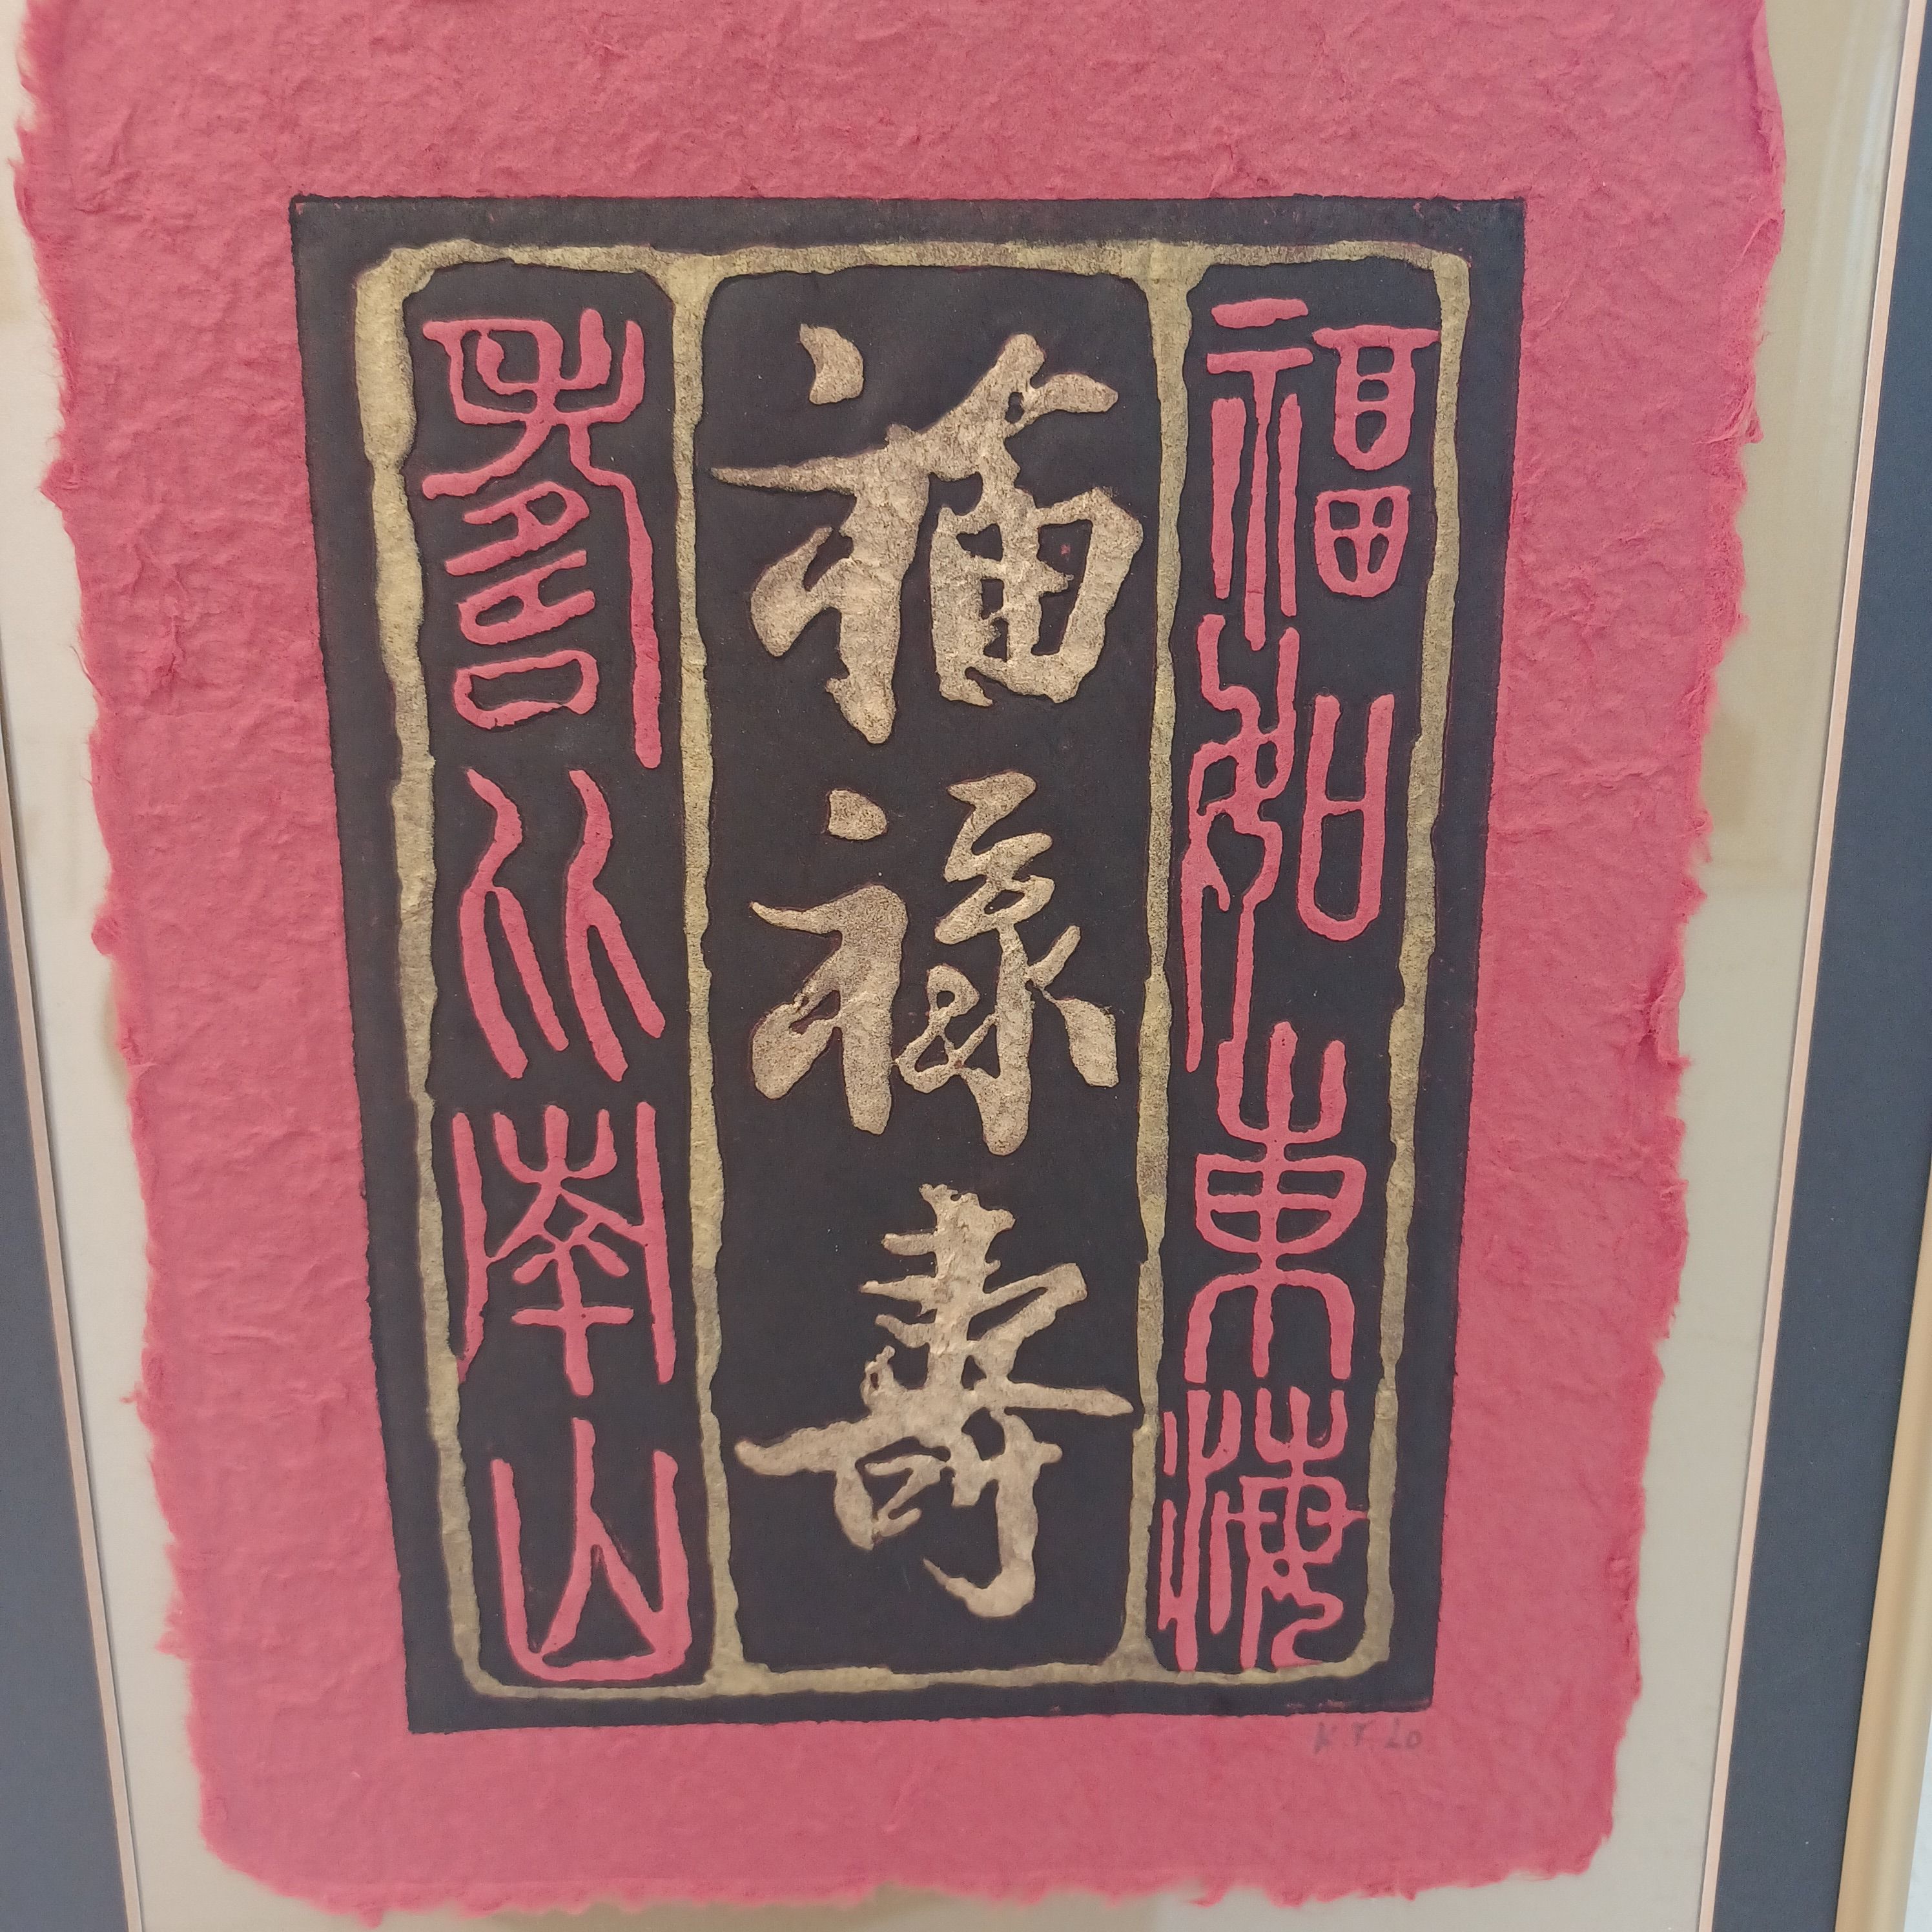 福如東海
福祿壽
壽比南山
K.T. Lo